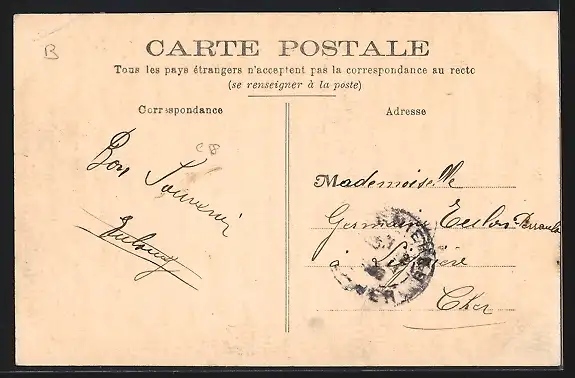 B
CARTE POSTALE
Tous les pays étrangers n'acceptent pas la correspondance au recto
(se renseigner à la poste)
Correspondance
Adresse
C8
Bon Souvenir
Mademoiselle
Germaine
à
Cher